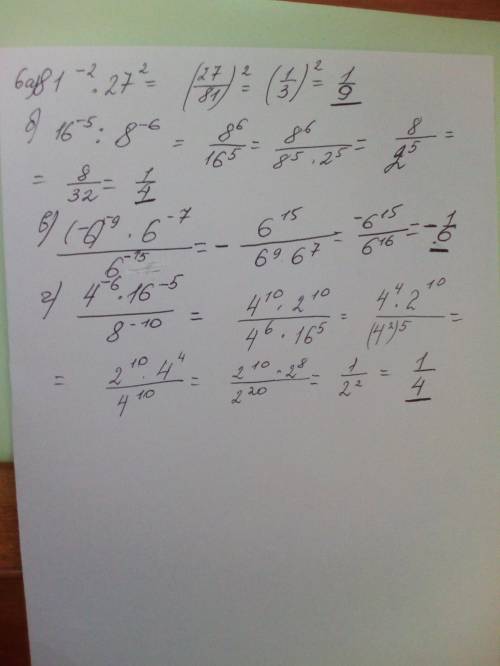 6 а) 81⁻² · 27² = (27/81)² = (1/3)² = 1/9
б) 16⁻⁵ : 8⁻⁶ = 8⁶/16⁵ = 8⁶/(8⁵ · 2⁵) = 8/2⁵ =
= 8/32 = 1/4
в) ((-6)⁻⁹ · 6⁻⁷)/6⁻¹⁵ = - 6¹⁵/(6⁹ · 6⁷) = -6¹⁵/6¹⁶ = - 1/6
г) (4⁻⁶ · 16⁻⁵)/8⁻¹⁰ = (4¹⁰ · 2¹⁰)/(4⁶ · 16⁵) = (4⁴ · 2¹⁰)/(4²)⁵ =
= (2¹⁰ · 4⁴)/4¹⁰ = (2¹⁰ · 2⁸)/2²⁰ = 1/2² = 1/4